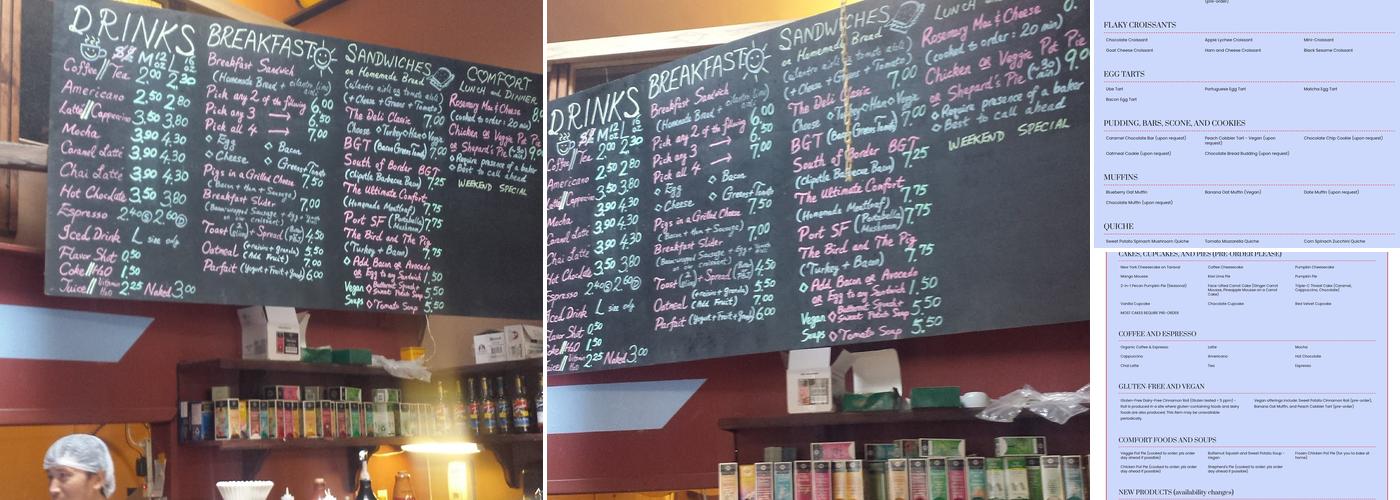 DRINKS
M 12 oz L 16 oz
Coffee // Tea 2.00 2.30
Americano 2.50 2.80
Latté // Cappuccino 3.50 3.80
Mocha 3.90 4.30
Caramel Latté 3.90 4.30
Chai Latté 3.90 4.30
Hot Chocolate 3.50 3.80
Espresso 2.40 2.60
Iced Drink L size only
Flavor Shot 0.50
Coke // H2O 1.50
Juice // Vitamin H2O 2.25 Naked 3.00
BREAKFAST
Breakfast Sandwich
(Homemade Bread + cilantro lime aioli)
Pick any 2 of the following 6.00
Pick any 3 → 6.50
Pick all 4 → 7.00
Egg Bacon
Cheese Greens+Tomato
Pigs in a Grilled Cheese 7.50
(Bacon + Ham + Sausage)
Breakfast Slider 7.00
Oatmeal (+raisins + granola) 3.50
(Add Fruit) 5.00
Parfait (Yogurt + Fruit + Granola) 6.00
SANDWICHES
on Homemade Bread
(cilantro aioli & tomato aioli)
(+ Cheese + Greens + Tomato)
The Deli Classic 7.00
Cheese Turkey Ham Veggie
BGT (Bacon Greens Tomato) 7.00
South of Border BGT
(Chipotle Barbecue Bacon) 7.25
The Ultimate Comfort
(Homemade Meatloaf) 7.75
Port SF (Portabella Mushroom) 7.75
The Bird and The Pig
(Turkey + Bacon) 7.75
Add Bacon or Avocado
or Egg to any Sandwich 1.50
Vegan Butternut Squash + Sweet Potato Soup 5.50
Soups Tomato Soup 5.50
COMFORT
LUNCH and DINNER
Rosemary Mac & Cheese
(cooked to order : 20 min)
Chicken or Veggie Pot Pie
or Shepard's Pie (~30 min) 9.00
Require presence of a baker
Best to call ahead
WEEKEND SPECIAL
(pre-order)
FLAKY CROISSANTS
Chocolate Croissant Apple Lychee Croissant Mini-Croissant
Goat Cheese Croissant Ham and Cheese Croissant Black Sesame Croissant
EGG TARTS
Ube Tart Portuguese Egg Tart Matcha Egg Tart
Bacon Egg Tart
PUDDING, BARS, SCONE, AND COOKIES
Caramel Chocolate Bar (upon request) Peach Cobbler Tart - Vegan (upon request) Chocolate Chip Cookie (upon request)
Oatmeal Cookie (upon request) Chocolate Bread Pudding (upon request)
MUFFINS
Blueberry Oat Muffin Banana Oat Muffin (Vegan) Date Muffin (upon request)
Chocolate Muffin (upon request)
QUICHE
Sweet Potato Spinach Mushroom Quiche Tomato Mozzarella Quiche Corn Spinach Zucchini Quiche
CAKES, CUPCAKES, AND PIES (PRE-ORDER PLEASE)
New York Cheesecake on Taraval Coffee Cheesecake Pumpkin Cheesecake
Mango Mousse Kiwi Lime Pie Pumpkin Pie
2-in-1 Pecan Pumpkin Pie (Seasonal) Face-Lifted Carrot Cake (Ginger Carrot Mousse, Pineapple Mousse on a Carrot Cake) Triple-C Threat Cake (Caramel, Cappuccino, Chocolate)
Vanilla Cupcake Chocolate Cupcake Red Velvet Cupcake
MOST CAKES REQUIRE PRE-ORDER
COFFEE AND ESPRESSO
Organic Coffee & Espresso Latte Mocha
Cappuccino Americano Hot Chocolate
Chai Latte Tea Espresso
GLUTEN-FREE AND VEGAN
Gluten-Free Dairy-Free Cinnamon Roll (Gluten tested < 5 ppm) - Roll is produced in a site where gluten-containing foods and dairy foods are also produced. This item may be unavailable periodically.
Vegan offerings include: Sweet Potato Cinnamon Roll (pre-order), Banana Oat Muffin, and Peach Cobbler Tart (pre-order)
COMFORT FOODS AND SOUPS
Veggie Pot Pie (cooked to order; pls order day ahead if possible) Butternut Squash and Sweet Potato Soup - Vegan Frozen Chicken Pot Pie (for you to bake at home)
Chicken Pot Pie (cooked to order; pls order day ahead if possible) Shepherd's Pie (cooked to order; pls order day ahead if possible)
NEW PRODUCTS (availability changes)